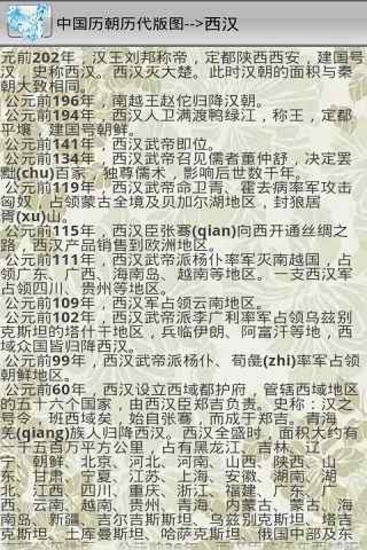 中国历朝历代版图-->西汉
元前202年，汉王刘邦称帝，定都陕西西安，建国号
汉，史称西汉。西汉灭大楚。此时汉朝的面积与秦
朝大致相同。
公元前196年，南越王赵佗归降汉朝。
公元前194年，汉人卫满渡鸭绿江，称王，定都
平壤，建国号朝鲜。
公元前141年，西汉武帝即位。
公元前134年，西汉武帝召见儒者董仲舒，决定罢
黜(chu)百家，独尊儒术，影响后世数千年。
公元前119年，西汉武帝命卫青、霍去病率军攻击
匈奴，占领蒙古全境及贝加尔湖地区，封狼居
胥(xu)山。
公元前115年，西汉臣张骞(qian)向西开通丝绸之
路，西汉产品销售到欧洲地区。
公元前111年，西汉武帝派杨仆率军灭南越国，占
领广东、广西、海南岛、越南等地区。一支西汉军
占领四川、贵州等地区。
公元前109年，西汉军占领云南地区。
公元前102年，西汉武帝派李广利率军占领乌兹别
克斯坦的塔什干地区，兵临伊朗、阿富汗等地，西
域众国皆归降西汉。
公元前99年，西汉武帝派杨仆、荀彘(zhi)率军占领
朝鲜地区。
公元前60年，西汉设立西域都护府，管辖西域地区
的五十六个国家，由西汉臣郑吉负责。史称：汉之
号令，班西域矣，始自张骞，而成于郑吉。青海
羌(qiang)族人归降西汉。西汉全盛时，面积大约有
一千五百万平方公里，占有黑龙江、吉林、辽
宁、朝鲜、北京、河北、河南、山西、陕西、山
东、甘肃、宁夏、江苏、上海、安徽、湖南、湖
北、江西、四川、重庆、浙江、福建、广东、广
西、云南、越南、贵州、青海、内蒙古、蒙古、海
南岛、新疆、吉尔吉斯斯坦、乌兹别克斯坦、塔吉
克斯坦、土库曼斯坦、哈萨克斯坦、俄国中部及东